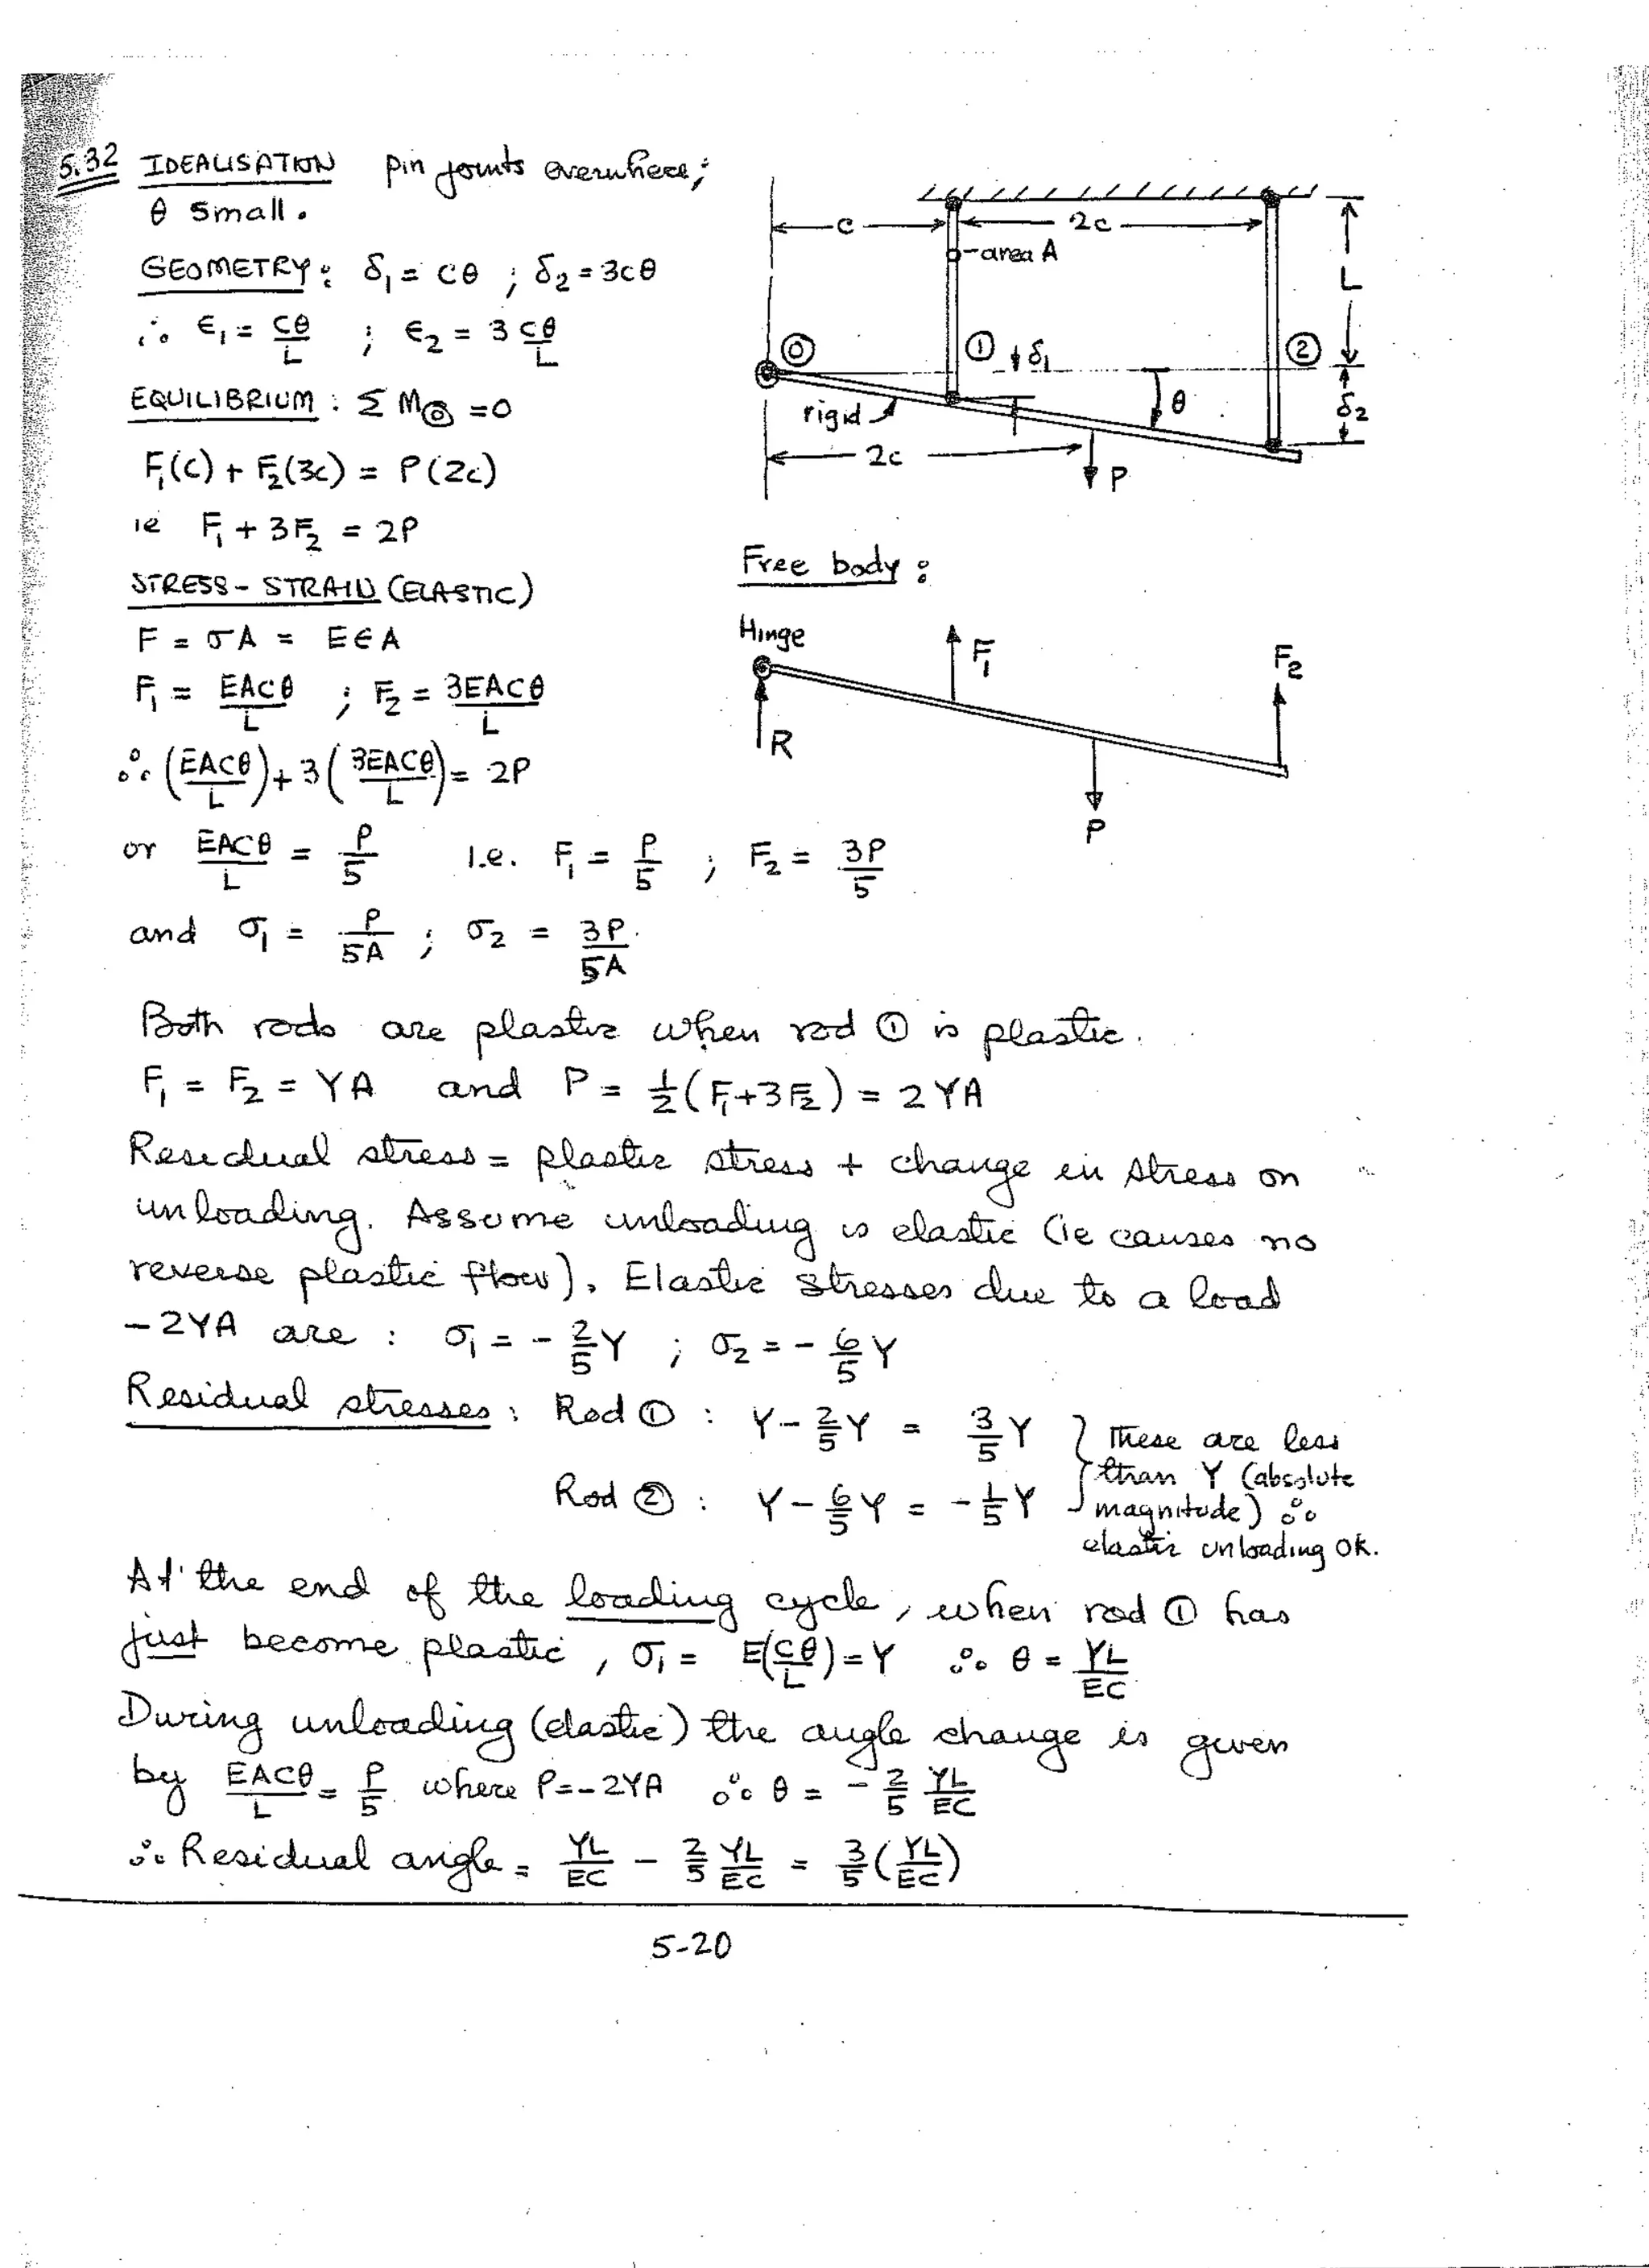 5.32 IDEALISATION Pin joints everywhere;
θ small.
GEOMETRY: δ₁ = cθ ; δ₂ = 3cθ
∴ ε₁ = cθ/L ; ε₂ = 3 cθ/L
EQUILIBRIUM : Σ M⓪ = 0
F₁(c) + F₂(3c) = P(2c)
ie F₁ + 3F₂ = 2P
STRESS - STRAIN (ELASTIC)
F = σA = EεA
F₁ = EACθ/L ; F₂ = 3EACθ/L
∴ (EACθ/L) + 3(3EACθ/L) = 2P
or EACθ/L = P/5 i.e. F₁ = P/5 ; F₂ = 3P/5
and σ₁ = P/5A ; σ₂ = 3P/5A
c
2c
area A
L
⓪
① δ₁
②
θ
δ₂
rigid
2c
P
Free body :
Hinge
F₁
F₂
R
P
Both rods are plastic when rod ① is plastic.
F₁ = F₂ = YA and P = ½(F₁+3F₂) = 2YA
Residual stress = plastic stress + change in stress on
unloading. Assume unloading is elastic (ie causes no
reverse plastic flow). Elastic stresses due to a load
-2YA are : σ₁ = - 2/5 Y ; σ₂ = - 6/5 Y
Residual stresses : Rod ① : Y - 2/5 Y = 3/5 Y
Rod ② : Y - 6/5 Y = - 1/5 Y
} These are less
than Y (absolute
magnitude) ∴
elastic unloading OK.
At the end of the loading cycle, when rod ① has
just become plastic, σ₁ = E(cθ/L) = Y ∴ θ = YL/EC
During unloading (elastic) the angle change is given
by EACθ/L = P/5 where P = -2YA ∴ θ = - 2/5 YL/EC
∴ Residual angle = YL/EC - 2/5 YL/EC = 3/5 (YL/EC)
5-20